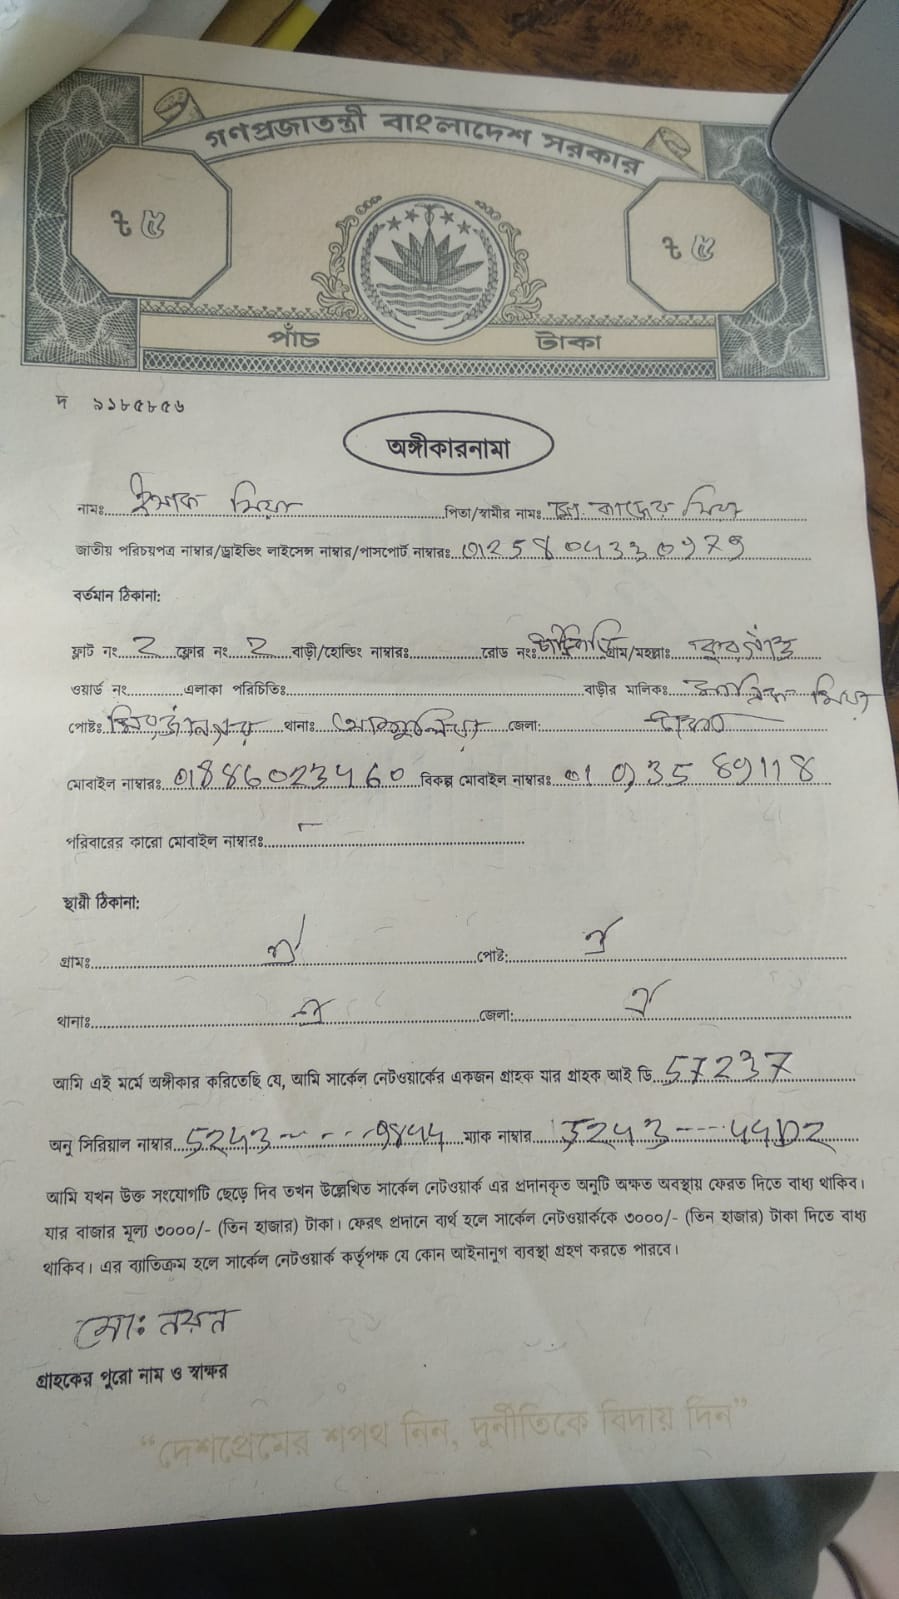 গণপ্রজাতন্ত্রী বাংলাদেশ সরকার
৳ ৫ ৳ ৫
পাঁচ টাকা
দ ৯১৮৫৮৫৬
অঙ্গীকারনামা
নামঃ মিয়া পিতা/স্বামীর নামঃ কাদের মিয়া
জাতীয় পরিচয়পত্র নাম্বার/ড্রাইভিং লাইসেন্স নাম্বার/পাসপোর্ট নাম্বারঃ
বর্তমান ঠিকানা:
ফ্লাট নং 2 ফ্লোর নং 2 বাড়ী/হোল্ডিং নাম্বারঃ রোড নংঃ গ্রাম/মহল্লাঃ
ওয়ার্ড নং এলাকা পরিচিতিঃ বাড়ীর মালিকঃ মিয়া
পোষ্টঃ থানাঃ জেলা: ঢাকা
মোবাইল নাম্বারঃ বিকল্প মোবাইল নাম্বারঃ
পরিবারের কারো মোবাইল নাম্বারঃ
স্থায়ী ঠিকানা:
গ্রামঃ ঐ পোষ্ট: ঐ
থানাঃ ঐ জেলা: ঐ
আমি এই মর্মে অঙ্গীকার করিতেছি যে, আমি সার্কেল নেটওয়ার্কের একজন গ্রাহক যার গ্রাহক আই ডি 57237
অনু সিরিয়াল নাম্বার ম্যাক নাম্বার
আমি যখন উক্ত সংযোগটি ছেড়ে দিব তখন উল্লেখিত সার্কেল নেটওয়ার্ক এর প্রদানকৃত অনুটি অক্ষত অবস্থায় ফেরত দিতে বাধ্য থাকিব।
যার বাজার মূল্য ৩০০০/- (তিন হাজার) টাকা। ফেরৎ প্রদানে ব্যর্থ হলে সার্কেল নেটওয়ার্ককে ৩০০০/- (তিন হাজার) টাকা দিতে বাধ্য
থাকিব। এর ব্যাতিক্রম হলে সার্কেল নেটওয়ার্ক কর্তৃপক্ষ যে কোন আইনানুগ ব্যবস্থা গ্রহণ করতে পারবে।
মো: নয়ন
গ্রাহকের পুরো নাম ও স্বাক্ষর
“দেশপ্রেমের শপথ নিন, দুর্নীতিকে বিদায় দিন”